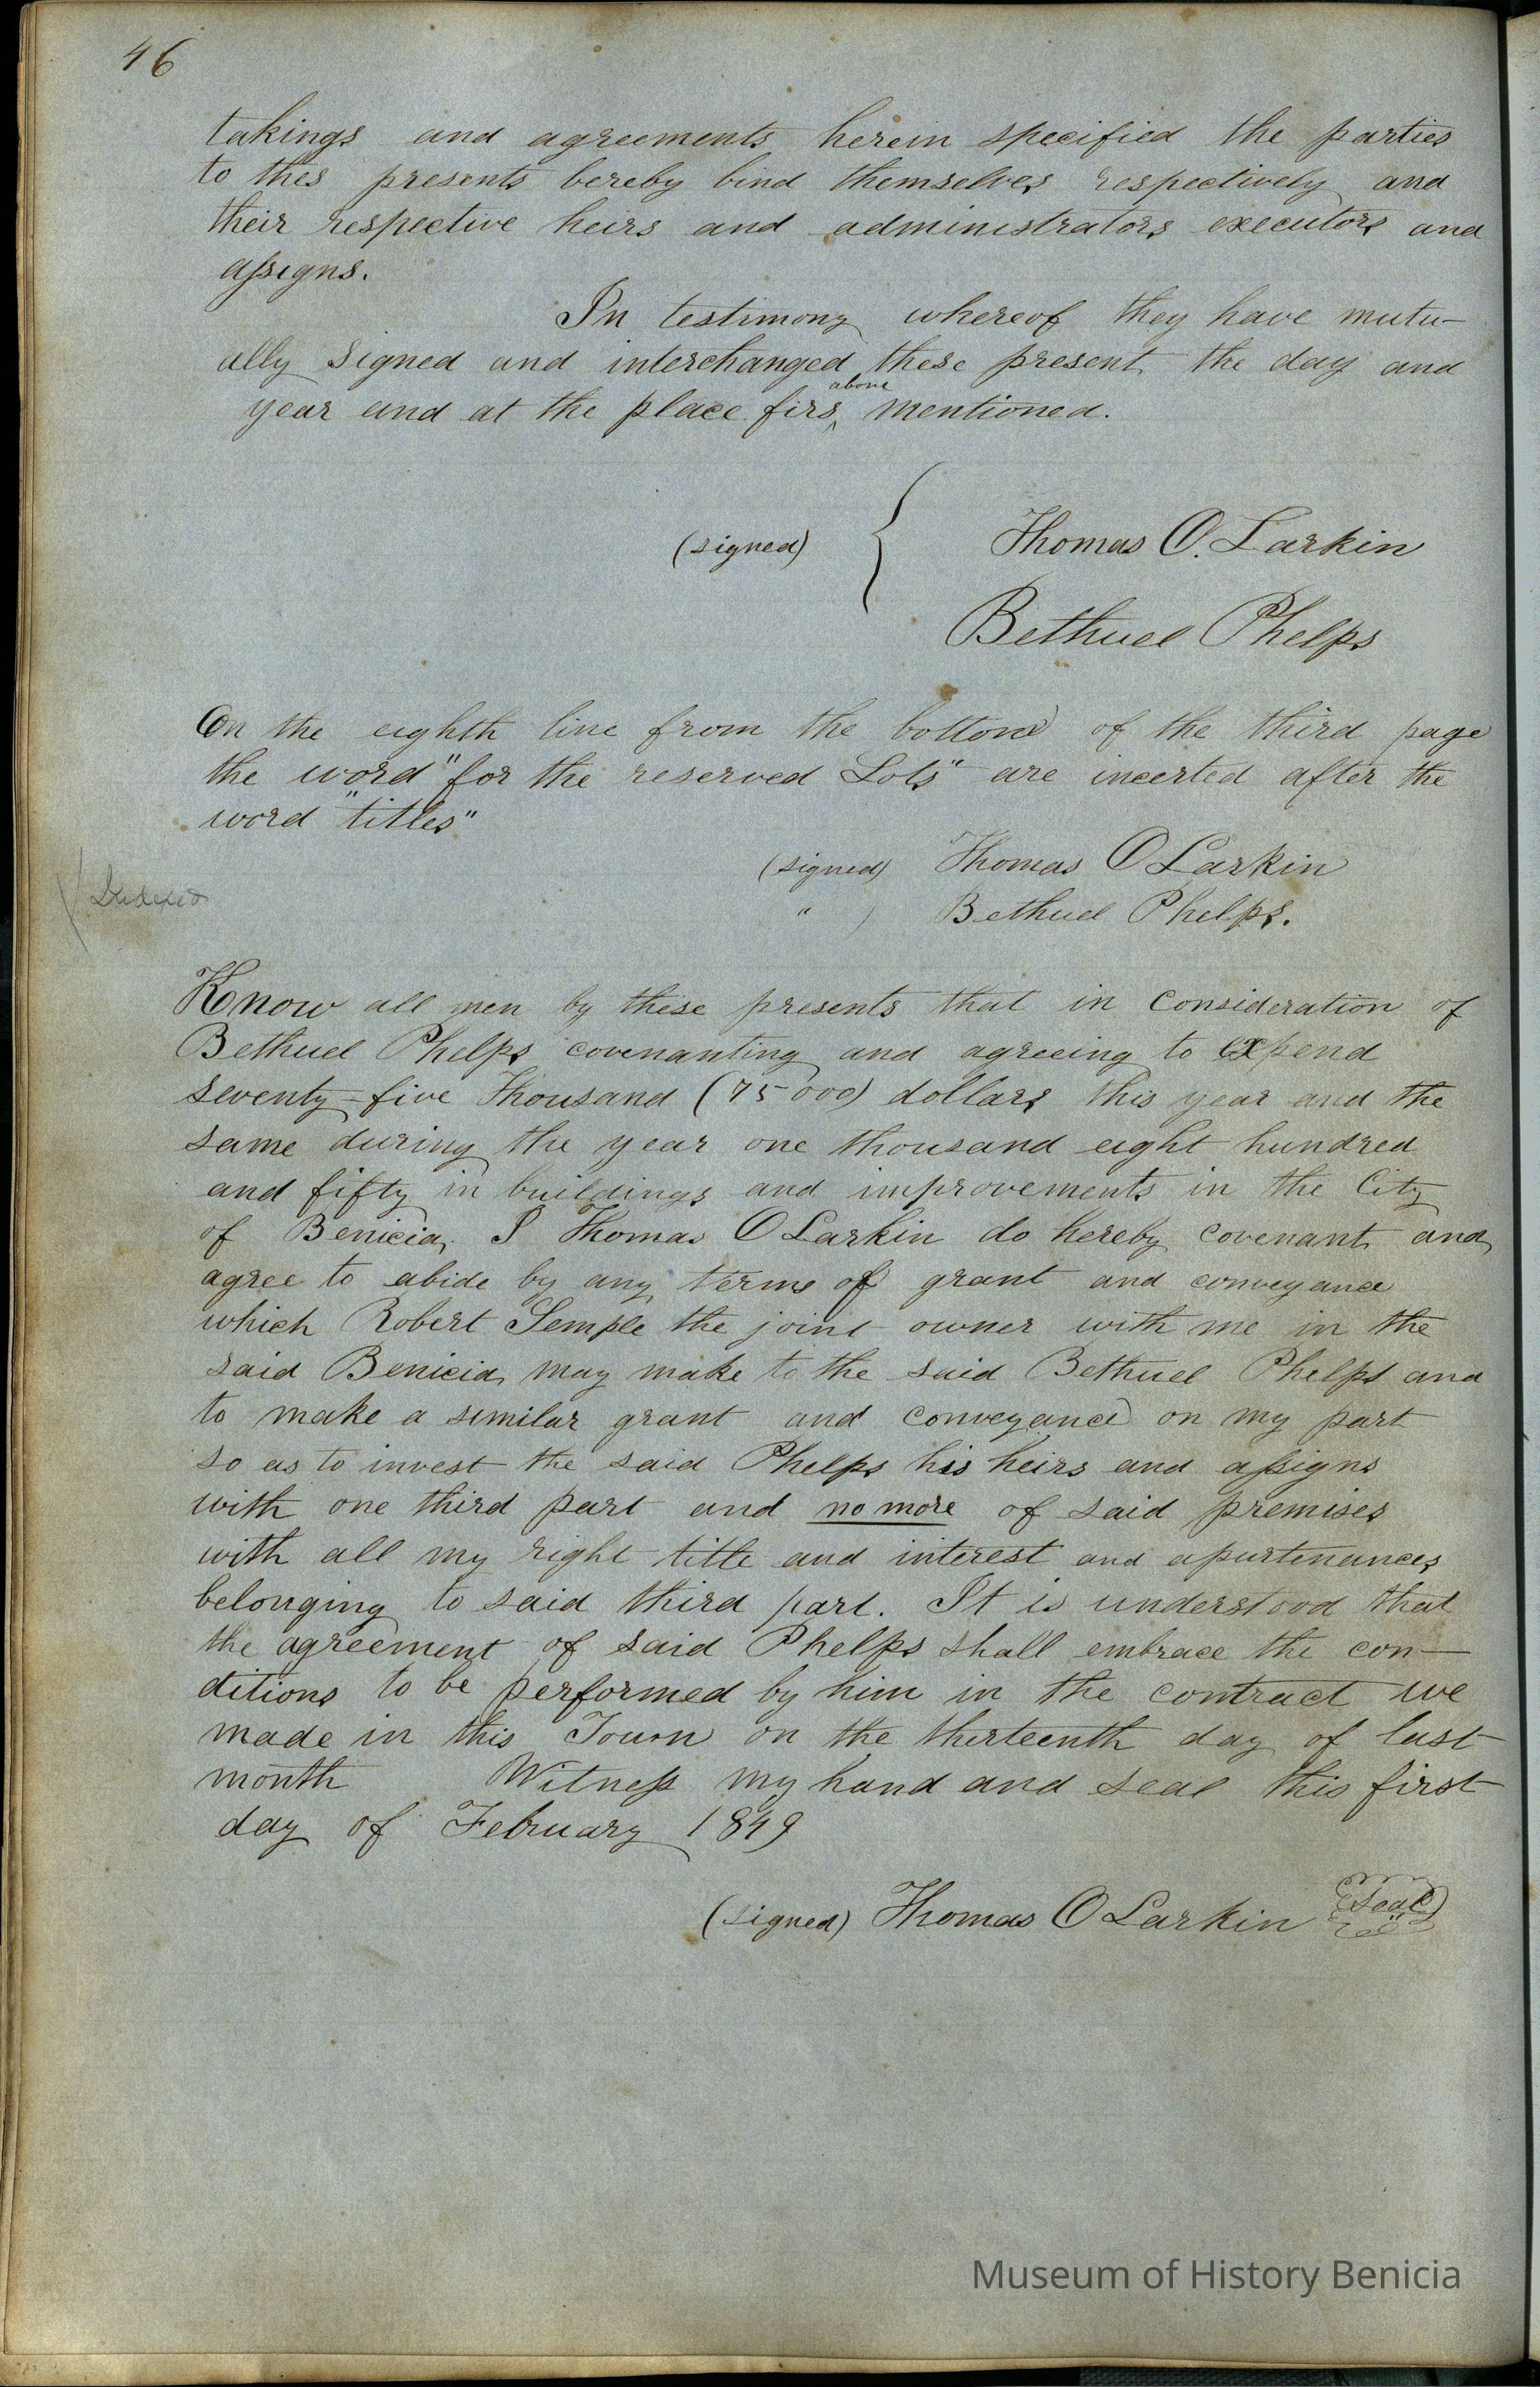 46
takings and agreements herein specified the parties
to thes presents hereby bind themselves respectively and
their respective heirs and administrators executors and
assigns.
In testimony whereof they have mutu-
ally signed and interchanged these present the day and
above
year and at the place firs mentioned.
(signed) { Thomas O. Larkin
Bethuel Phelps
On the eighth line from the bottom of the third page
the word "for the reserved Lots" are incerted after the
word "titles"
(signed) Thomas O Larkin
Indexed
" ) Bethuel Phelps.
Know all men by these presents that in consideration of
Bethuel Phelps covenanting and agreeing to expend
seventy-five thousand (75000) dollars this year and the
same during the year one thousand eight hundred
and fifty in buildings and improvements in the City
of Benicia, I Thomas O Larkin do hereby covenant and
agree to abide by any terms of grant and conveyance
which Robert Semple the joint owner with me in the
said Benicia may make to the said Bethuel Phelps and
to make a similar grant and conveyance on my part
so as to invest the said Phelps his heirs and assigns
with one third part and no more of said premises
with all my right title and interest and apurtenances
belonging to said third part. It is understood that
the agreement of said Phelps shall embrace the con-
ditions to be performed by him in the contract we
made in this Town on the thirteenth day of last
month Witness my hand and seal this first
day of February 1849
(signed) Thomas O Larkin Seal
Museum of History Benicia